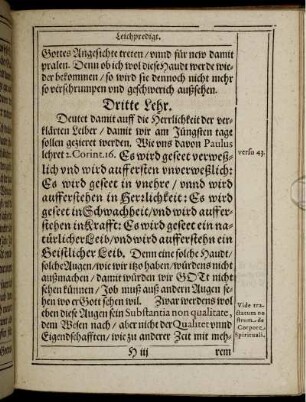 Leichpredigt.
Gottes Angesichte treten/ vnnd für new damit
pralen. Denn ob ich wol diese Haudt werde wie-
der bekommen/ so wird sie dennoch nicht mehr
so verschrumpen vnd geschwerich außsehen.
Dritte Lehr.
Deutet damit auff die Herrlichkeit der ver-
klärten Leiber/ damit wir am Jüngsten tage
sollen gezieret werden. Wie vns davon Paulus
lehret 2. Corint. 16. Es wird geseet verweß-
lich vnd wird auffersten vnverweßlich:
Es wird geseet in vnehre/ vnnd wird
aufferstehen in Herzligkeit: Es wird
geseet in Schwachheit/ vnd wird auffer-
stehen in Krafft: Es wird geseet ein na-
türlicher Leib/ vnd wird aufferstehn ein
Geistlicher Leib. Denn eine solche Haudt/
solche Augen/ wie wir itzo haben/ würdens nicht
außmachen/ damit würden wir GOtt nicht
sehen können/ Job muß auß andern Augen se-
hen wo er Gott sehen wil. Zwar werdens wol
eben diese Augen sein Substantia non qualitate,
dem Wesen nach/ aber nicht der Qualitet vnnd
Eigendschafften/ wie zu anderer Zeit mit meh-
H iij
rem
versu 43.
Vide tra-
ctatum no
strum de
Corpore
Spirituali.